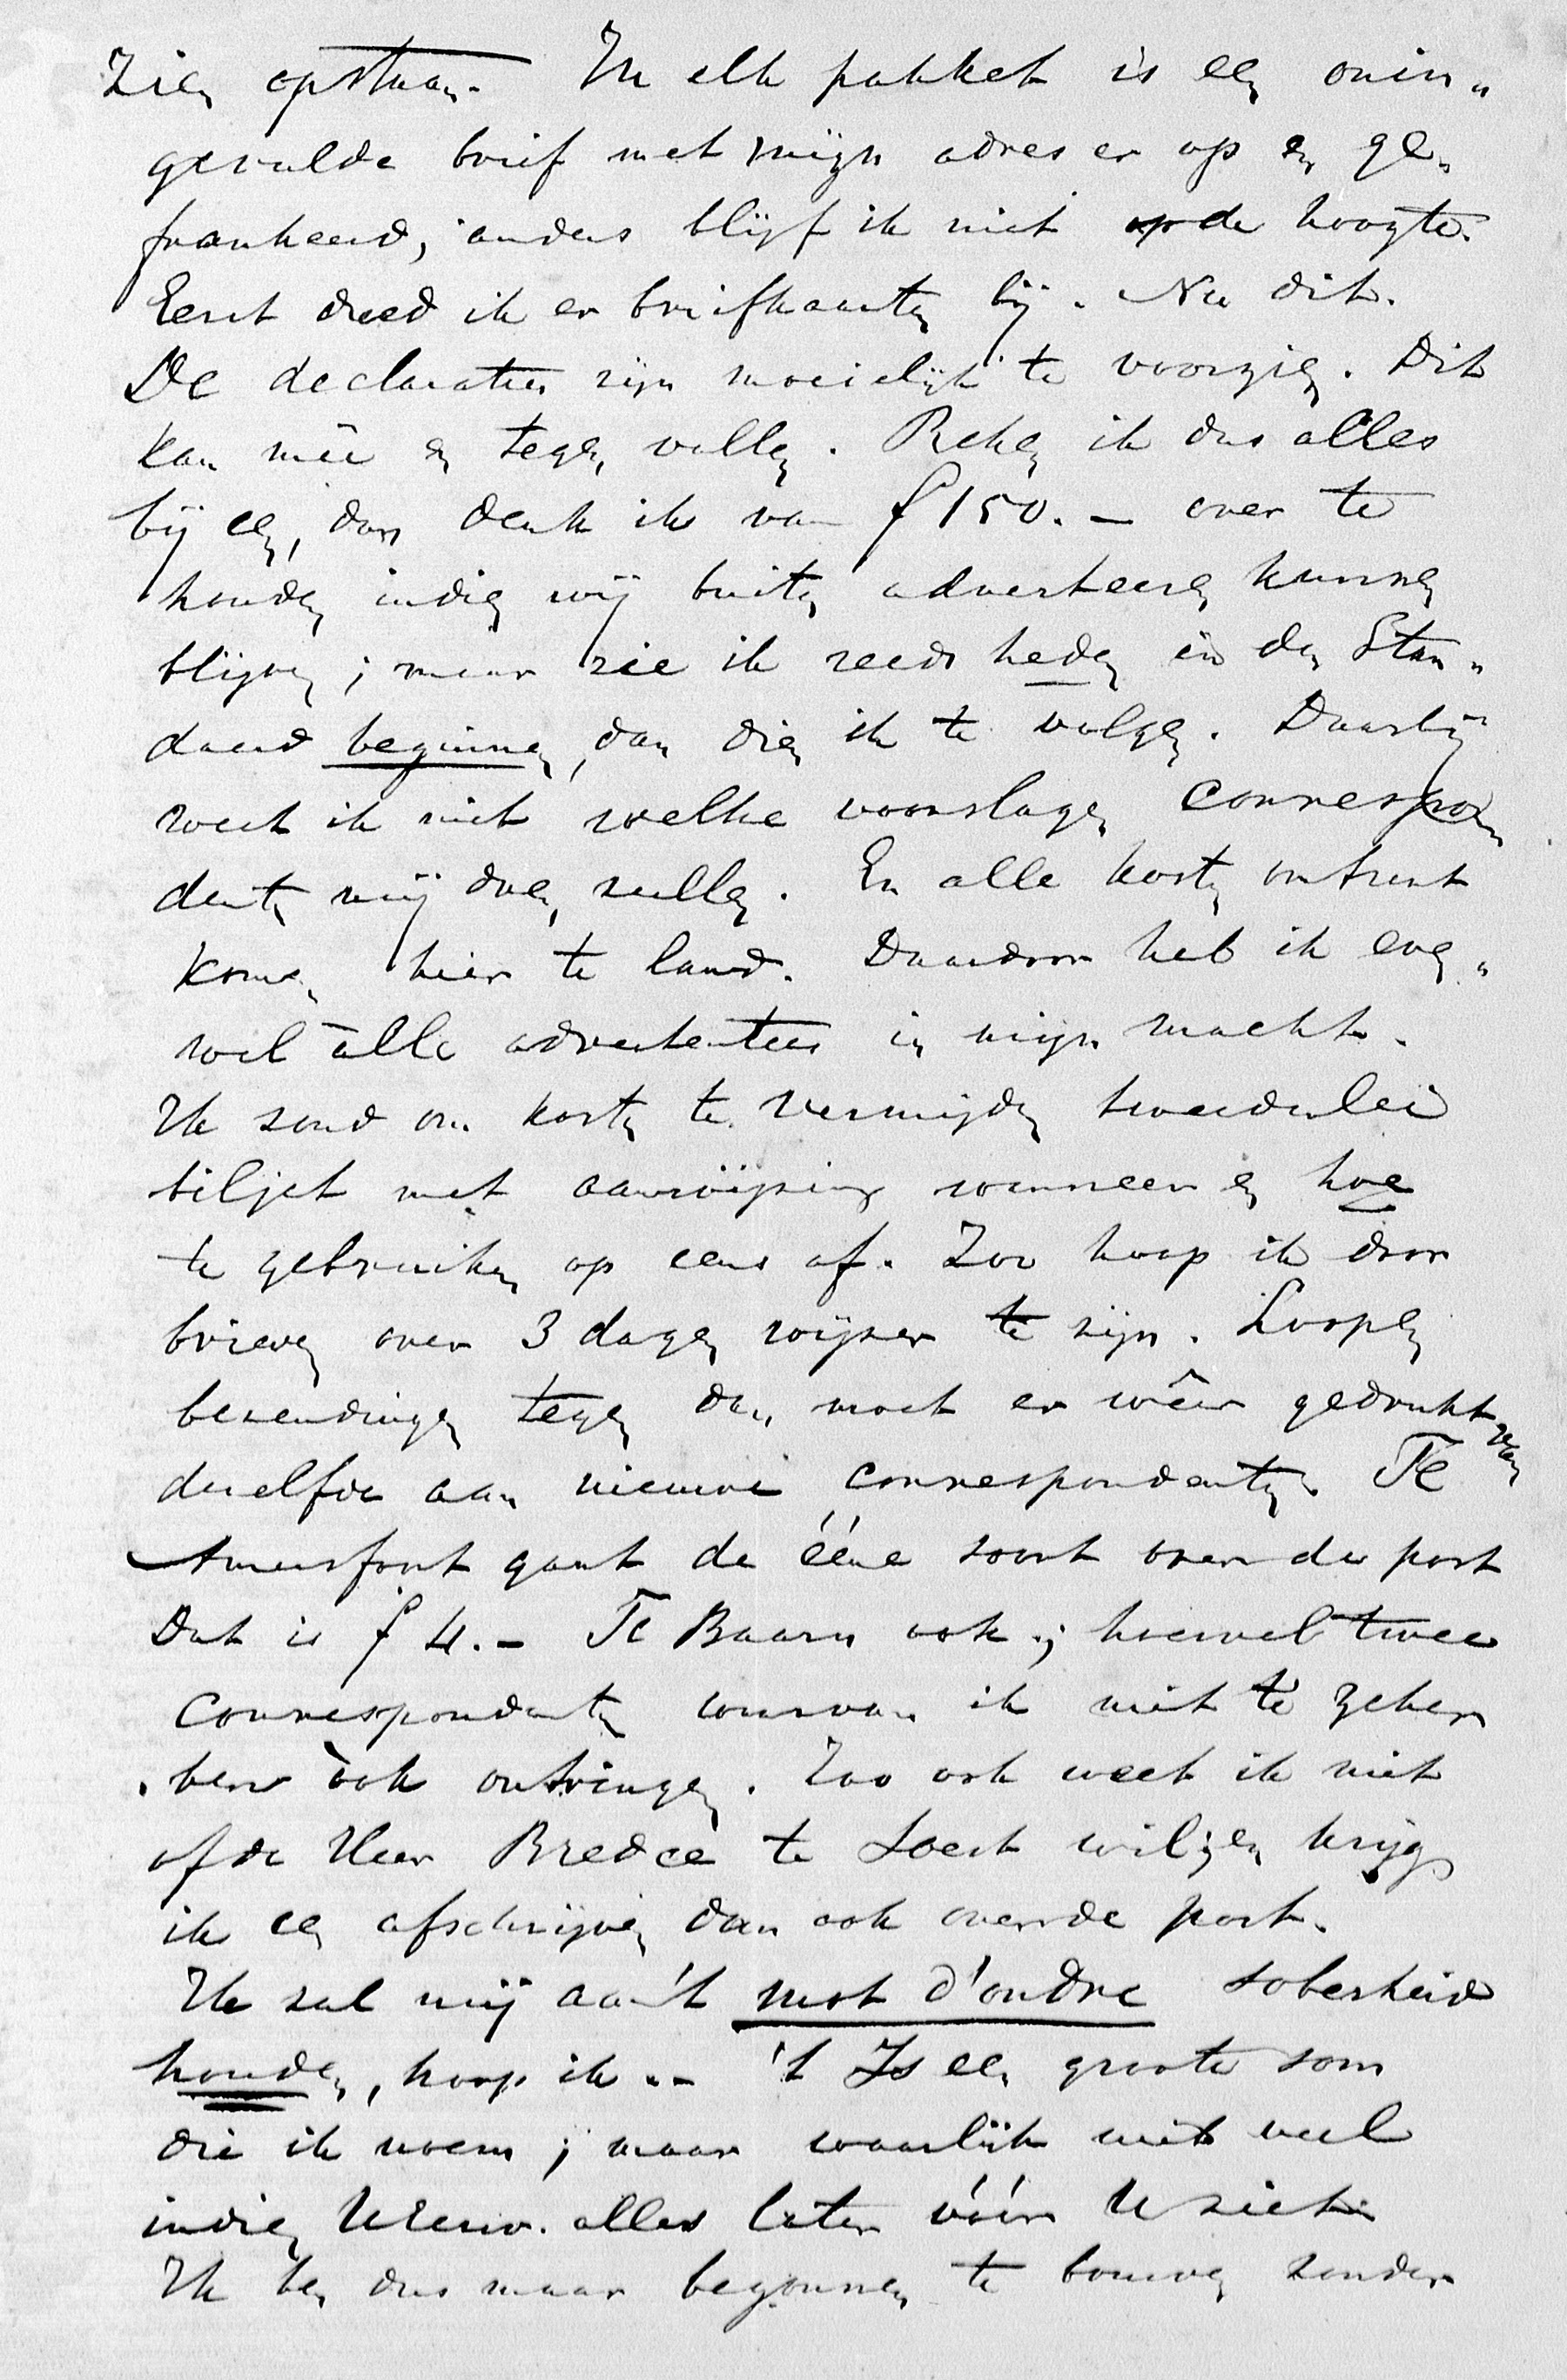 zien opstaan. In elk pakket is een onin„
gevulde brief met mijn adres er op en ge„
frankeerd; anders blijf ik niet op de hoogte.
Eerst deed ik er briefkaarten bij. Nu dit.
De declaraties zijn moeielijk te voorzien. Dit
kan meê en tegen vallen. Reken ik dus alles
bij een, dan denk ik van f 150.- over te
houden indien wij buiten adverteeren kunnen
blijven; maar zie ik reeds heden in den Stan„
daard beginnen, dan dien ik te volgen. Daarbij
weet ik niet welke voorslagen correspon
denten mij doen zullen. En alle kosten omtrent
komen hier te land. Daardoor heb ik even„
wel alle advertenties in mijn macht.
Ik zond om kosten te vermijden tweederlei
biljet met aanwijzing wanneer en hoe
te gebruiken op eens af. Zoo hoop ik door
brieven over 3 dagen wijzer te zijn. Loopen
bezendingen tegen dan moet er wêer gedrukt van
dezelfde aan nieuwe correspondenten. Te
Amersfoort gaat de ééne soort over de post
Dat is f 4.- Te Baarn ook; hoewel twee
correspondenten waarvan ik niet te zeker
ben òok ontvingen. Zoo ook weet ik niet
of de Heer Bredée te Soest wil; en krijg
ik een afschrijven dan ook over de post.
Ik zal mij aan 't mot d'ordre soberheid
houden, hoop ik.- 't Is een groote som
die ik noem; maar waarlijk niet veel
indien UEerw. alles later vóór U ziet.
Ik ben dus maar begonnen te bouwen zonder